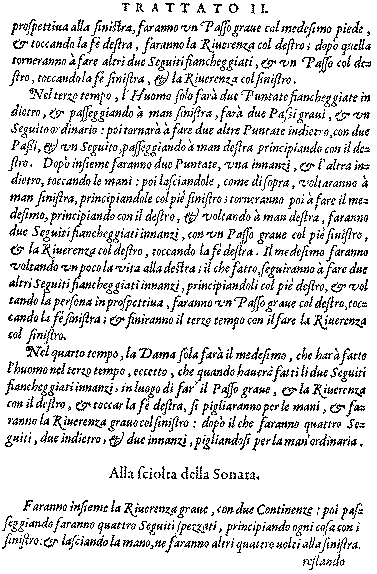 TRATTATO II.
prospettiua alla sinistra, faranno vn Passo graue col medesimo piede,
& toccando la fè destra, faranno la Riuerenza col destro; dopò quella
torneranno à fare altri due Seguiti fiancheggiati, & vn Passo col de-
stro, toccando la fè sinistra, & la Riuerenza col sinistro.
Nel terzo tempo, l'Huomo solo farà due Puntate fiancheggiate in
dietro, & passeggiando à man sinistra, farà due Passi graui, & vn
Seguito ordinario: poi tornarà à fare due altre Puntate indietro, con due
Passi, & vn Seguito, passeggiando à man destra principiando con il de-
stro. Dopò insieme faranno due Puntate, vna innanzi, & l'altra in-
dietro, toccando le mani: poi lasciandole, come di sopra, voltaranno à
man sinistra, principiandole col piè sinistro; torneranno poi à fare il me-
desimo, principiando con il destro, & voltando à man destra, faranno
due Seguiti fiancheggiati innanzi, con vn Passo graue col piè sinistro,
& la Riuerenza col destro, toccando la fè destra. Il medesimo faranno
voltando vn poco la vita alla destra; il che fatto, seguiranno à fare due
altri Seguiti fiancheggiati innanzi, principiandoli col piè destro, & vol
tando la persona in prospettiua, faranno vn Passo graue col destro, toc-
cando la fè sinistra; & finiranno il terzo tempo con il fare la Riuerenza
col sinistro.
Nel quarto tempo, la Dama sola farà il medesimo, che harà fatto
l'huomo nel terzo tempo, eccetto, che quando hauerà fatti li due Seguiti
fiancheggiati innanzi, in luogo di far' il Passo graue, & la Riuerenza
con il destro, & toccar la fè destra, si pigliaranno per le mani, & fa-
ranno la Riuerenza graue col sinistro: dopò il che faranno quattro Se-
guiti, due indietro, & due innanzi, pigliandosi per la man' ordinaria.
Alla sciolta della Sonata.
Faranno insieme la Riuerenza graue, con due Continenze: poi pas-
seggiando faranno quattro Seguiti spezzati, principiando ogni cosa con i
sinistro: & lasciando la mano, ne faranno altri quattro uolti alla sinistra.
restando